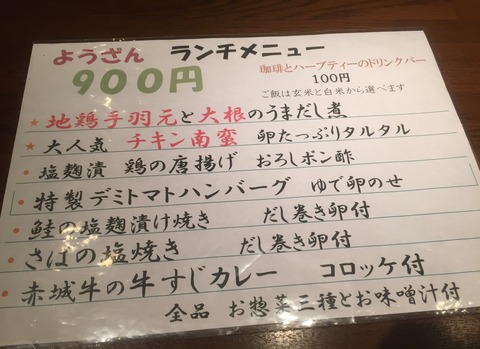 ようざん ランチメニュー
900円
珈琲とハーブティーのドリンクバー
100円
ご飯は玄米と白米から選べます
★地鶏手羽元と大根のうまだし煮
★大人気 チキン南蛮 卵たっぷりタルタル
・塩麹漬 鶏の唐揚げ おろしポン酢
・特製デミトマトハンバーグ ゆで卵のせ
・鮭の塩麹漬け焼き だし巻き卵付
・さばの塩焼き だし巻き卵付
・赤城牛の牛すじカレー コロッケ付
全品 お惣菜三種とお味噌汁付